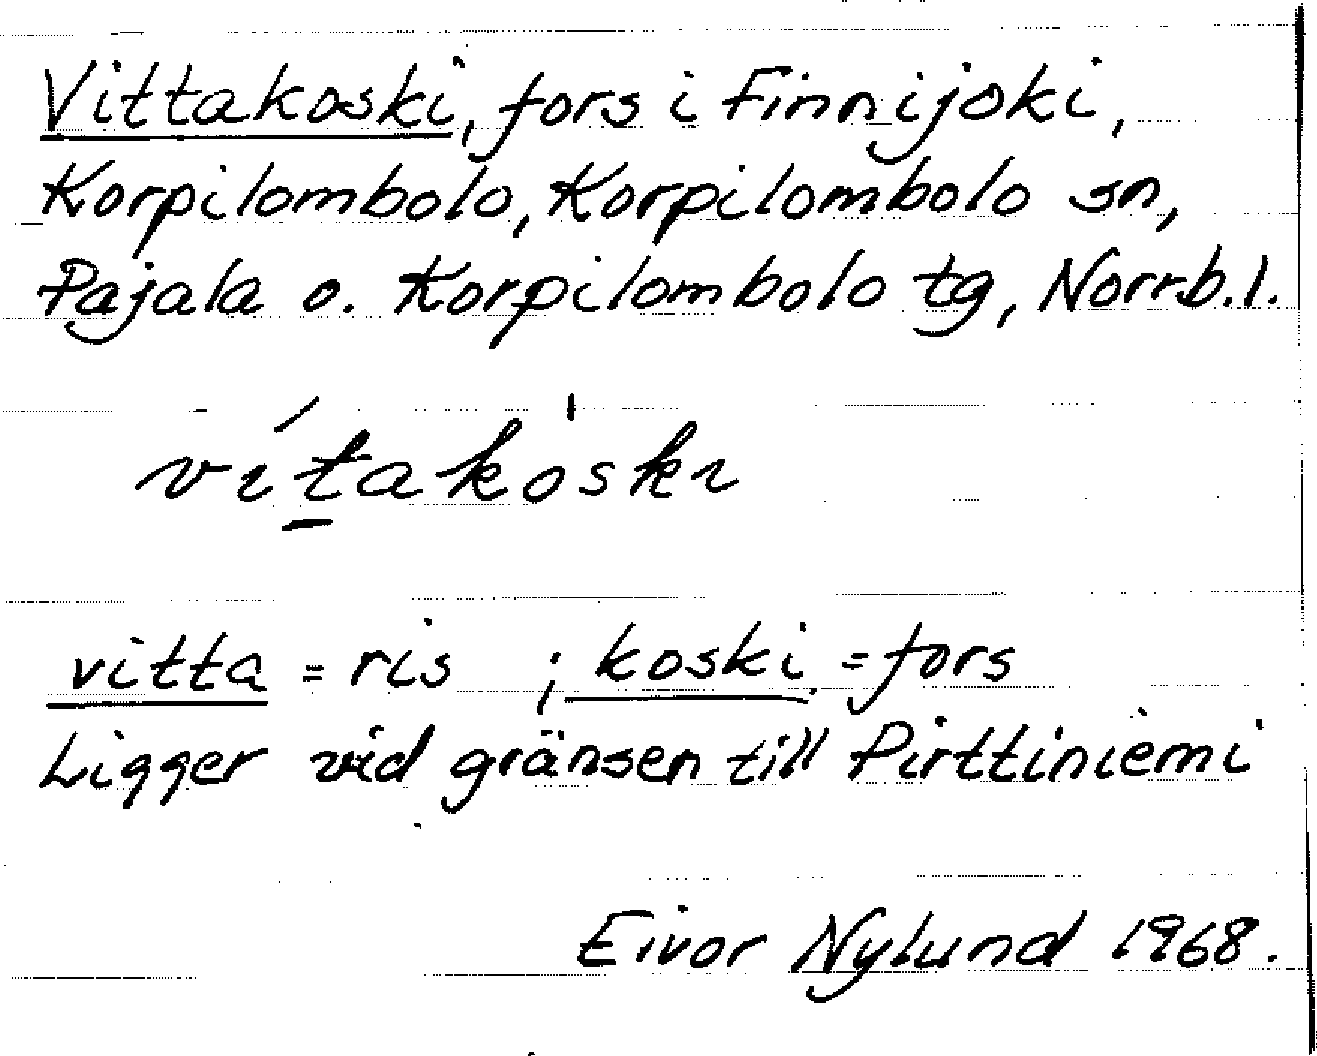 Vittakoski, fors i Finnijoki,
Korpilombolo, Korpilombolo sn,
Pajala o. Korpilombolo tg, Norrb.l.
vítakòski
vitta = ris ; koski = fors
Ligger vid gränsen till Pirttiniemi
Eivor Nylund 1968.